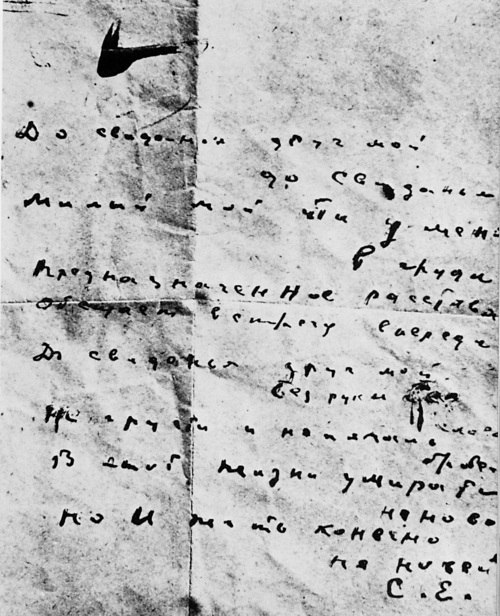 До свиданья друг мой
до свиданья
Милый мой ты у меня
в груди
Предназначенное расставa
обещает встречу впереди
До свиданья друг мой
без руки без
слова
Не грусти и не печаль
бровей
В этой жизни умирать
не ново
но и жить конечно
не новей
С. Е.